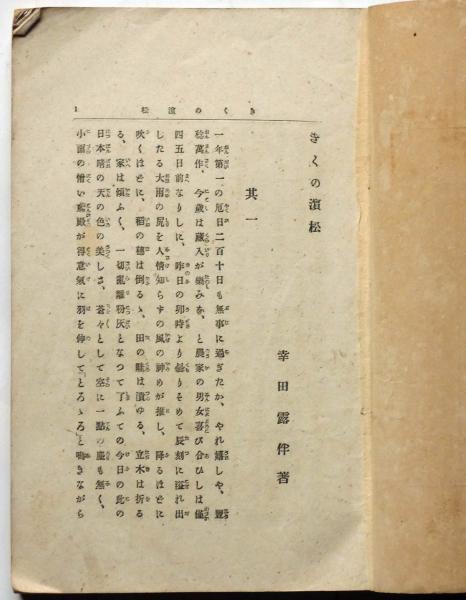 きくの濱松
幸田露伴著
其一
一年第一の厄日二百十日も無事に過ぎたか、やれ嬉しや、豐
稔萬作、今歳は藏入が樂みを、と農家の男女喜び合ひしは僅
四五日前なりしに、昨日の卯時より曇りそめて辰刻に溢れ出
したる大雨の尻を人情知らずの風の神めが推し、降るほどに
吹くほどに、稻の穗は倒るゝ、田の畦は潰ゆる、立木は折る
る、家は傾ぶく、一切亂離粉灰となつて了ふての今日の此の
日本晴の天の色の美しさ、蒼々として空に一點の塵も無く、
小面の憎い鳶殿が得意氣に羽を伸して『とろゝろ』と鳴きながら
きくの濱松
1